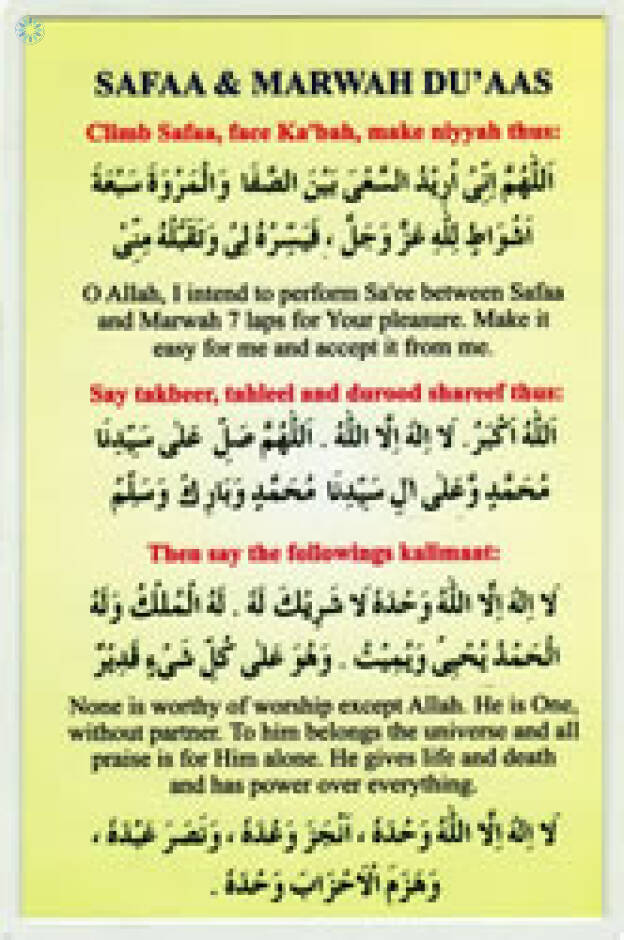 SAFAA & MARWAH DU'AAS
Climb Safaa, face Ka'bah, make niyyah thus:
اَللّٰهُمَّ اِنِّیْ اُرِیْدُ السَّعْیَ بَیْنَ الصَّفَا وَالْمَرْوَةَ سَبْعَةَ
اَشْوَاطٍ لِلّٰهِ عَزَّ وَجَلَّ ، فَیَسِّرْهُ لِیْ وَتَقَبَّلْهُ مِنِّیْ
O Allah, I intend to perform Sa'ee between Safaa
and Marwah 7 laps for Your pleasure. Make it
easy for me and accept it from me.
Say takbeer, tahleel and durood shareef thus:
اَللّٰهُ اَکْبَرُ . لَا اِلٰهَ اِلَّا اللّٰهُ . اَللّٰهُمَّ صَلِّ عَلٰی سَیِّدِنَا
مُحَمَّدٍ وَّعَلٰی اٰلِ سَیِّدِنَا مُحَمَّدٍ وَبَارِكْ وَسَلِّمْ
Then say the followings kalimaat:
لَا اِلٰهَ اِلَّا اللّٰهُ وَحْدَهُ لَا شَرِیْكَ لَهُ . لَهُ الْمُلْكُ وَلَهُ
الْحَمْدُ یُحْیِیْ وَیُمِیْتُ . وَهُوَ عَلٰی كُلِّ شَیْءٍ قَدِیْرٌ
None is worthy of worship except Allah. He is One,
without partner. To him belongs the universe and all
praise is for Him alone. He gives life and death
and has power over everything.
لَا اِلٰهَ اِلَّا اللّٰهُ وَحْدَهُ ، اَنْجَزَ وَعْدَهُ ، وَنَصَرَ عَبْدَهُ ،
وَهَزَمَ الْاَحْزَابَ وَحْدَهُ .